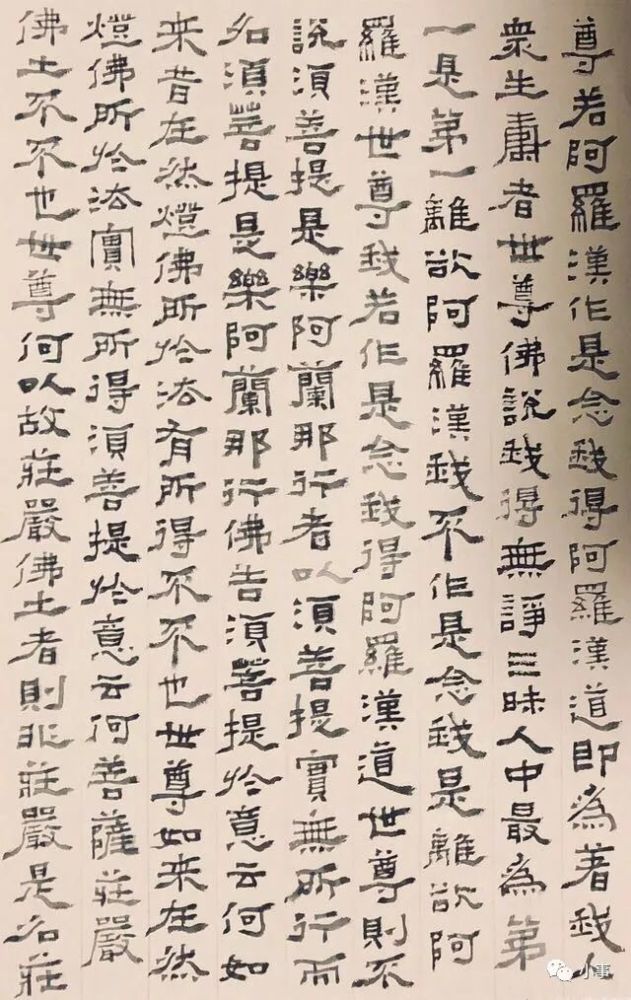 尊若阿羅漢作是念我得阿羅漢道即為著我人
衆生壽者世尊佛說我得無諍三昧人中最為第
一是第一離欲阿羅漢我不作是念我是離欲阿
羅漢世尊我若作是念我得阿羅漢道世尊則不
說須菩提是樂阿蘭那行者以須菩提實無所行而
名須菩提是樂阿蘭那行佛告須菩提於意云何如
来昔在然燈佛所於法有所得不不也世尊如来在然
燈佛所於法實無所得須菩提於意云何菩薩莊嚴
佛土不不也世尊何以故莊嚴佛土者則非莊嚴是名莊